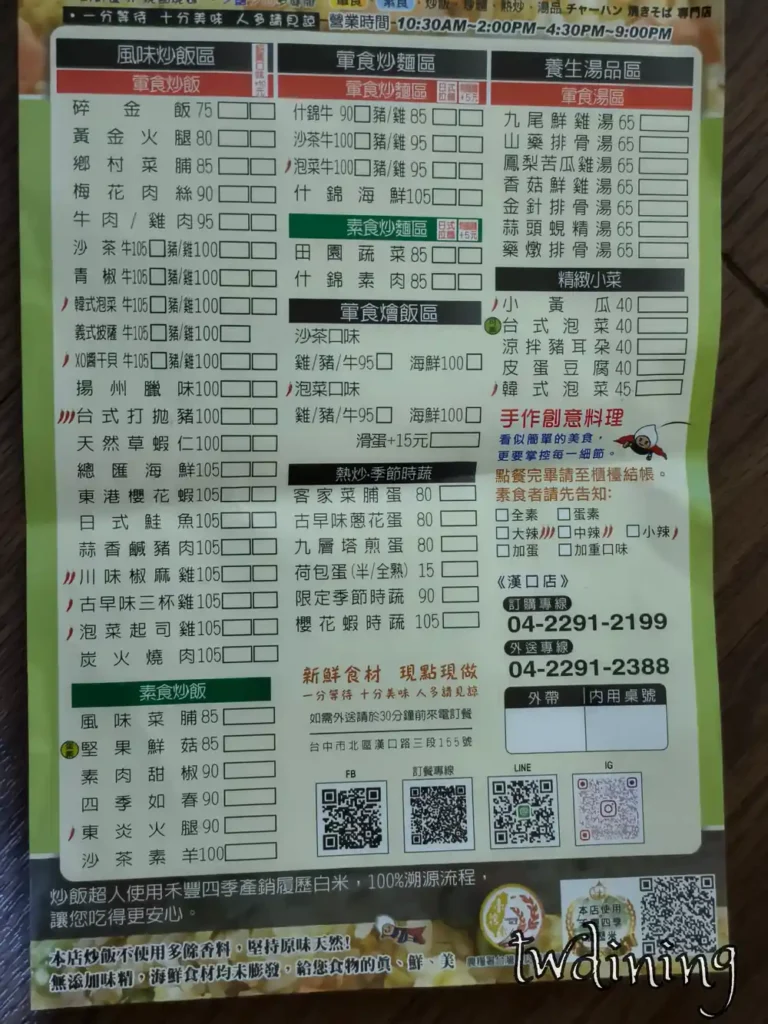 ・一分等待 十分美味 人多請見諒
炒飯、炒麵、熱炒、湯品 チャーハン 焼きそば 専門店
營業時間-10:30AM~2:00PM~4:30PM~9:00PM
風味炒飯區
葷食炒飯
碎金飯75
黃金火腿80
鄉村菜脯85
梅花肉絲90
牛肉/雞肉95
沙茶牛105 豬/雞100
青椒牛105 豬/雞100
韓式泡菜牛105 豬/雞100
義式披薩牛105 豬/雞100
XO醬干貝牛105 豬/雞100
揚州臘味100
台式打拋豬100
天然草蝦仁100
總匯海鮮105
東港櫻花蝦105
日式鮭魚105
蒜香鹹豬肉105
川味椒麻雞105
古早味三杯雞105
泡菜起司雞105
炭火燒肉105
素食炒飯
風味菜脯85
堅果鮮菇85
素肉甜椒90
四季如春90
東炎火腿90
沙茶素羊100
葷食炒麵區
葷食炒麵區 日式拉麵 +5元
什錦牛 90 豬/雞 85
沙茶牛100 豬/雞 95
泡菜牛100 豬/雞 95
什錦海鮮105
素食炒麵區 日式拉麵 +5元
田園蔬菜85
什錦素肉85
葷食燴飯區
沙茶口味
雞/豬/牛95 海鮮100
泡菜口味
雞/豬/牛95 海鮮100
滑蛋+15元
熱炒·季節時蔬
客家菜脯蛋 80
古早味蔥花蛋 80
九層塔煎蛋 80
荷包蛋(半/全熟) 15
限定季節時蔬 90
櫻花蝦時蔬 105
新鮮食材 現點現做
一分等待 十分美味 人多請見諒
如需外送請於30分鐘前來電訂餐
台中市北區漢口路三段155號
FB
訂餐專線
LINE
IG
養生湯品區
葷食湯區
九尾鮮雞湯65
山藥排骨湯65
鳳梨苦瓜雞湯65
香菇鮮雞湯65
金針排骨湯65
蒜頭蜆精湯65
藥燉排骨湯65
精緻小菜
小黃瓜40
台式泡菜40
涼拌豬耳朵40
皮蛋豆腐40
韓式泡菜45
手作創意料理
看似簡單的美食，
更要掌控每一細節。
點餐完畢請至櫃檯結帳。
素食者請先告知：
全素 蛋素
大辣 中辣 小辣
加蛋 加重口味
《漢口店》
訂購專線
04-2291-2199
外送專線
04-2291-2388
外帶 內用桌號
炒飯超人使用禾豐四季產銷履歷白米，100%溯源流程，
讓您吃得更安心。
本店使用
本店炒飯不使用多餘香料，堅持原味天然!
無添加味精，海鮮食材均未膨發，給您食物的真、鮮、美
twdining